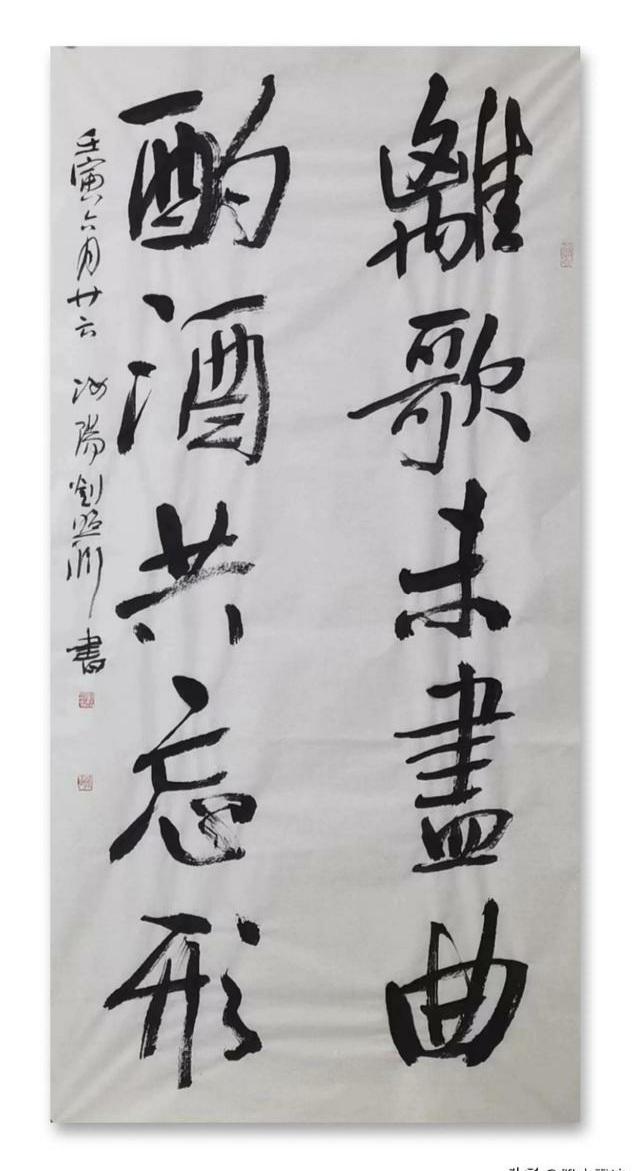 離歌未盡曲
酌酒共忘形
壬寅六月廿六 汝陽劉照淵書